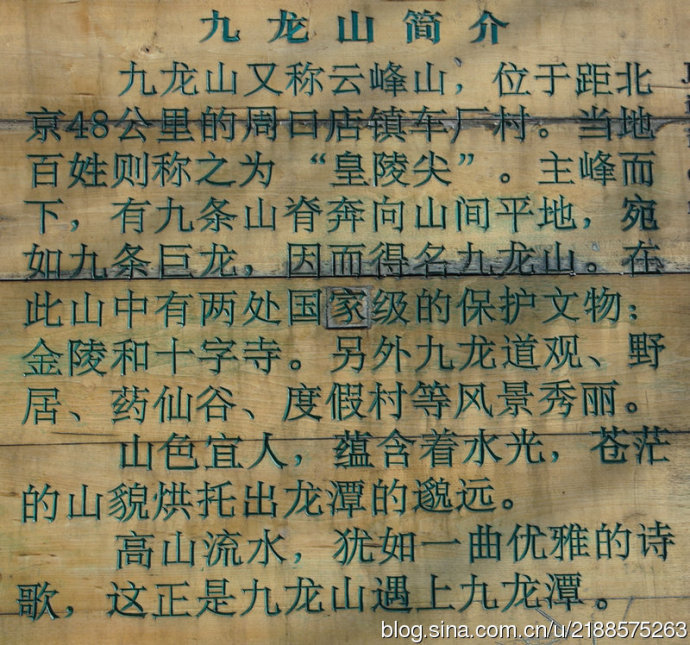 九龙山简介
九龙山又称云峰山，位于距北
京48公里的周口店镇车厂村。当地
百姓则称之为“皇陵尖”。主峰而
下，有九条山脊奔向山间平地，宛
如九条巨龙，因而得名九龙山。在
此山中有两处国家级的保护文物：
金陵和十字寺。另外九龙道观、野
居、药仙谷、度假村等风景秀丽。
山色宜人，蕴含着水光，苍茫
的山貌烘托出龙潭的邈远。
高山流水，犹如一曲优雅的诗
歌，这正是九龙山遇上九龙潭。
blog.sina.com.cn/u/2188575263